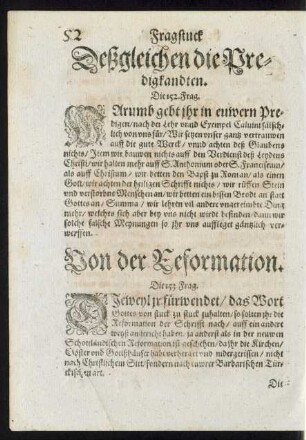 52
Fragstuck
Deßgleichen die Pre-
digkandten.
Die 152. Frag.
WArumb gebt jhr in euwern Pre-
digen/ nach der Lehr vnnd Exempel Caluini fälschlich
von vns für/ Wir setzen vnser gantz vertrauwen
auff die gute Werck/ vnnd achten deß Glaubens
nichts/ Item wir bauwen nichts auff den Verdienst deß Leydens
Christi/ wir halten mehr auff S. Anthonium oder S. Franciscum/
als auff Christum/ wir betten den Bapst zu Rom an/ als einen
Gott/ wir achten der heiligen Schrifft nichts/ wir rüffen Stein
vnd verstorbne Menschen an/ wir betten ein bissen Brodt an statt
Gottes an/ Summa/ wir lehren vil andere vngereimbte Ding
mehr/ welches sich aber bey vns nicht wirdt befinden/ dann wir
solche falsche Meynungen so jhr vns aufflieget gäntzlich ver-
werffen.
Von der Reformation.
Die 153 Frag.
DIeweyl jr fürwendet/ das Wort
Gottes von stuck zu stuck zuhalten/ so soltten jhr die
Reformation der Schrifft nach/ auff ein andere
weyß angericht haben/ ja anderst als in der newen
Schottländischen Reformation ist geschehen/ da jhr die Kirchen/
Clöster vnd Gottßhäuser habt verhergt vnd nidergerissen/ nicht
nach Christlichem Sitt/ sondern nach euwrer Barbarischen Tür-
ckischen art.
Die